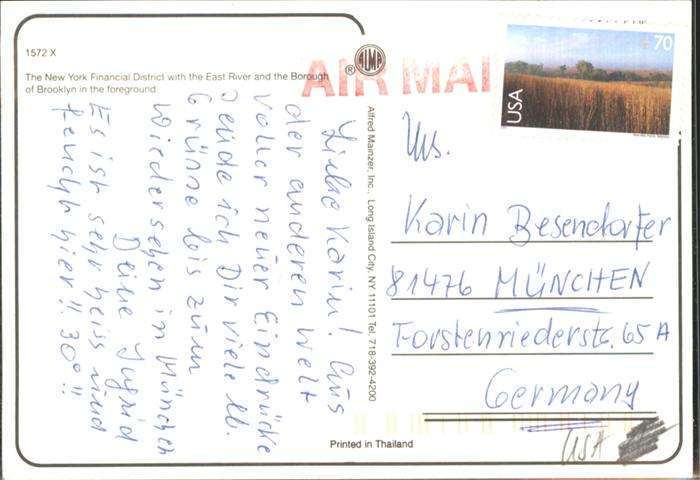 1572 X
The New York Financial District with the East River and the Borough
of Brooklyn in the foreground
AIR MAIL
ALMA
®
70
USA
Alfred Mainzer, Inc., Long Island City, NY 11101 Tel. 718-392-4200
Liebe Karin! Aus
der anderen Welt
voller neuer Eindrücke
sende ich Dir viele lb.
Grüsse bis zum
Wiedersehen in München
Deine Ingrid
Es ist sehr heiss und
feucht hier!! 30°!!
Ms.
Karin Besendorfer
81476 MÜNCHEN
Forstenriederstr. 65 A
Germany
Printed in Thailand
USA